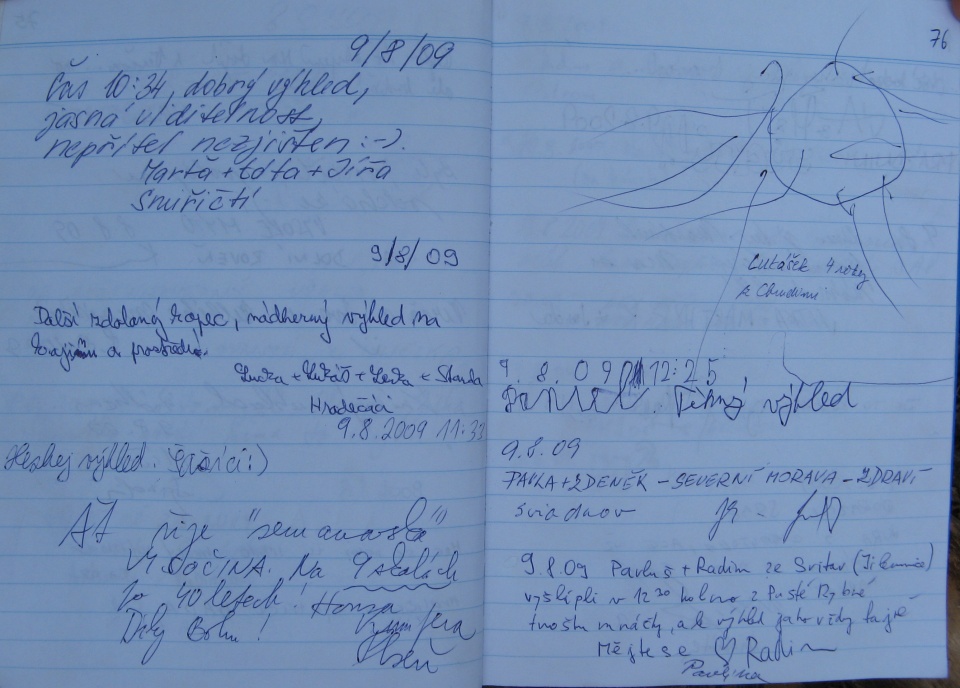 9/8/09
Čas 10:34, dobrý výhled,
jasná viditelnost,
nepřítel nezjišten :-).
Marťa + Lota + Jířa
Snuřičtí
9/8/09
Další zdolaný kopec, nádherný výhled na
a prostředí.
Lucka + Lukáš + Lenka + Standa
Hradečáci
9.8.2009 11:33
Heskej výhled. :)
AŤ žije "semanasta"
VYSOČINA. Na 9 skalách
po 40 letech! Honza
Díky Bohu!
76
Lukášek 4 roky
z Chrudimi
9. 8. 09 12:25
Daniel. Pěkný výhled
9.8.09
PAVLA + ZDENĚK - SEVERNÍ MORAVA - ZDRAVÍ
Sviadnov
9.8.09 Pavluš + Radim ze Svitav
vyšlápli v 12 30 kolmo z Pusté Rybné
trošku mráčky, ale výhled jako vždy
Mějte se Radim
Pavlínka